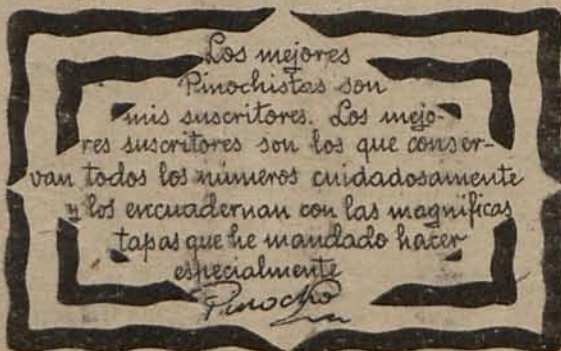 Los mejores
Pinochistas son
mis suscritores. Los mejo-
res suscritores son los que conser-
van todos los números cuidadosamente
y los encuadernan con las magníficas
tapas que he mandado hacer
especialmente
Pinocho